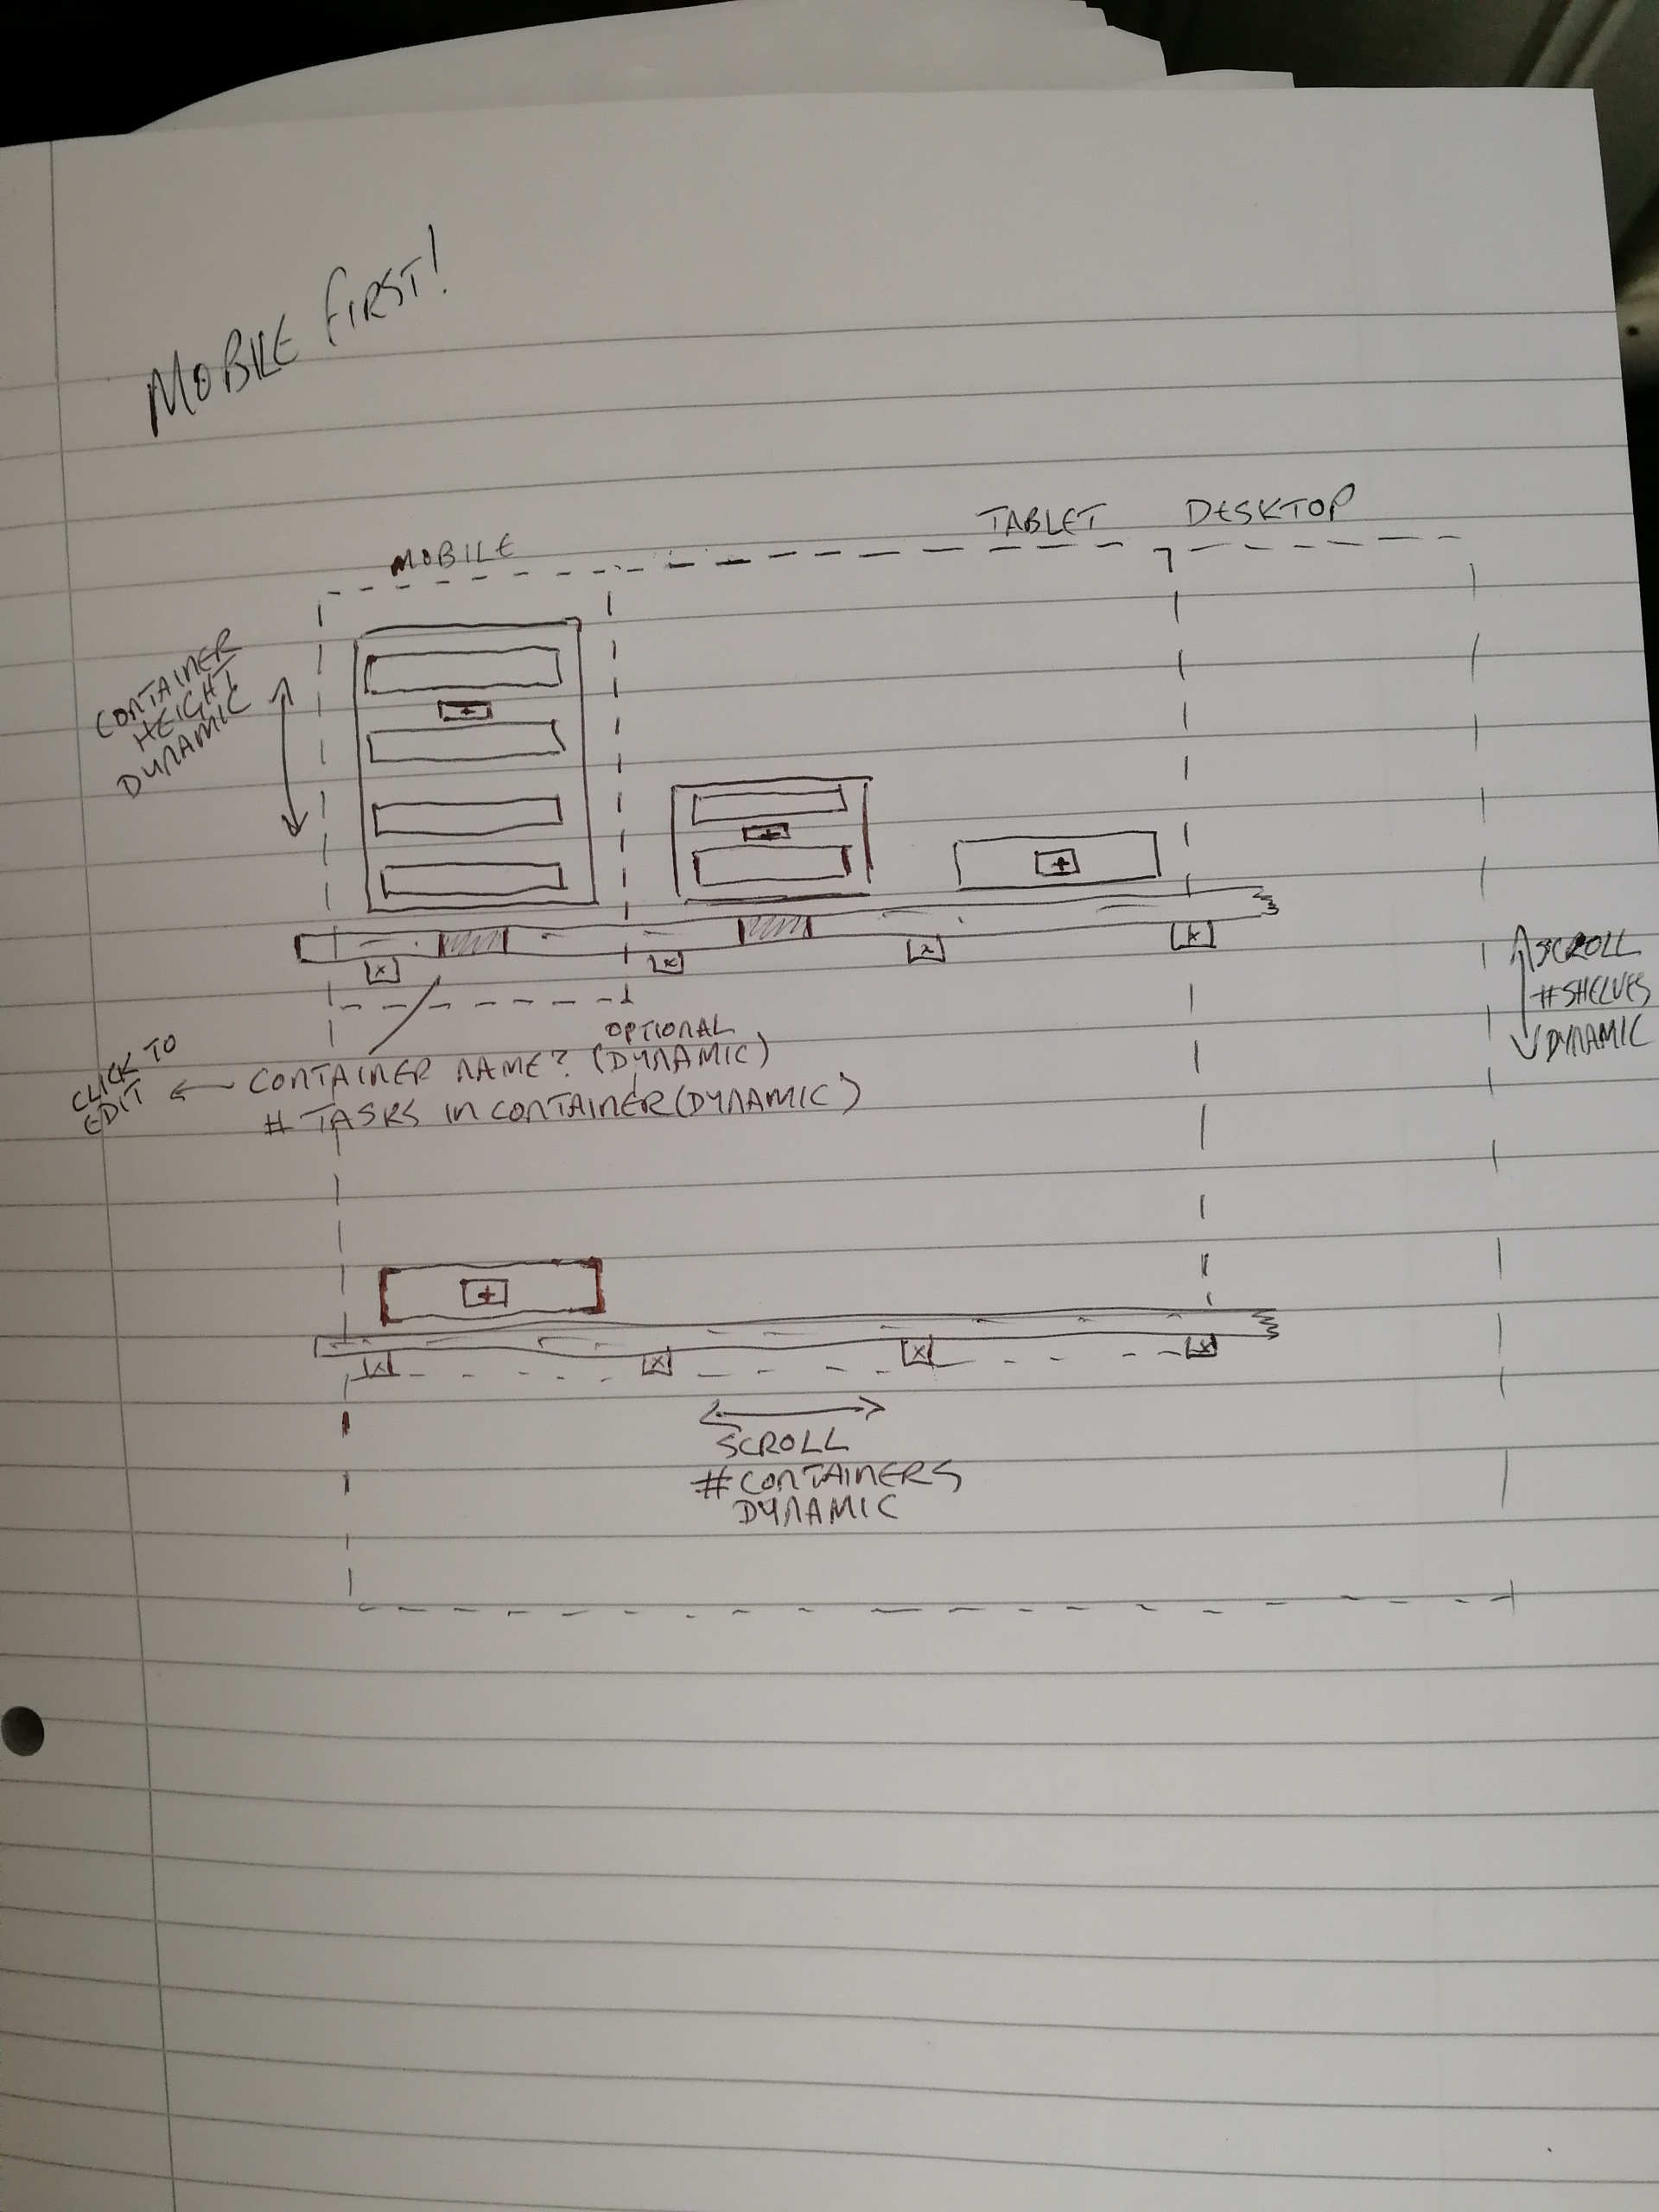 MOBILE FIRST!
TABLET DESKTOP
MOBILE
CONTAINER
HEIGHT
DYNAMIC
+
+
+
x x x x
SCROLL
#SHELVES
DYNAMIC
OPTIONAL
CLICK TO
EDIT
CONTAINER NAME? (DYNAMIC)
# TASKS IN CONTAINER (DYNAMIC)
+
x x x x
SCROLL
#CONTAINERS
DYNAMIC